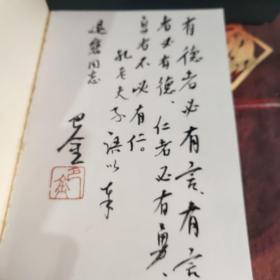 有德者必有言、有言
者必有德、仁者必有勇、
勇者不必有仁。
孔老夫子语以奉
同志
巴金